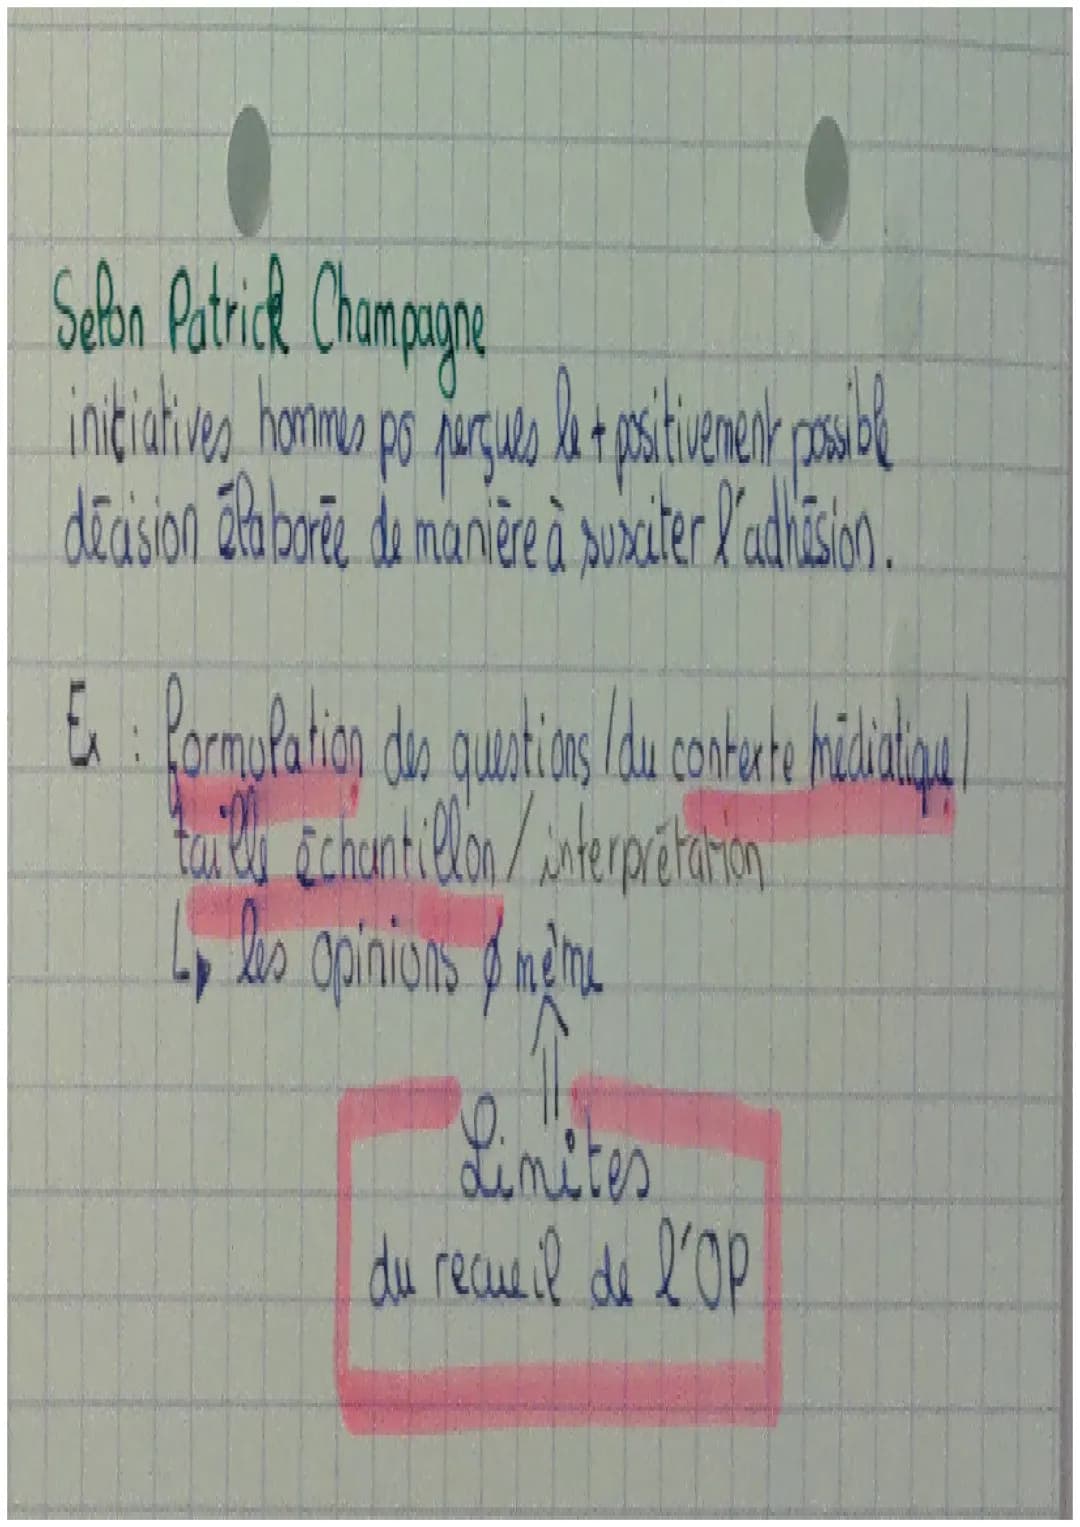 Selon Patrick Champagne
initiatives hommes po perçues le + positivement possible
décision élaborée de manière à susciter l'adhésion.
Ex : formulation des questions / du contexte médiatique /
taille échantillon / interprétation
↳ les opinions ø même
⇑
Limites
du recueil de l'OP